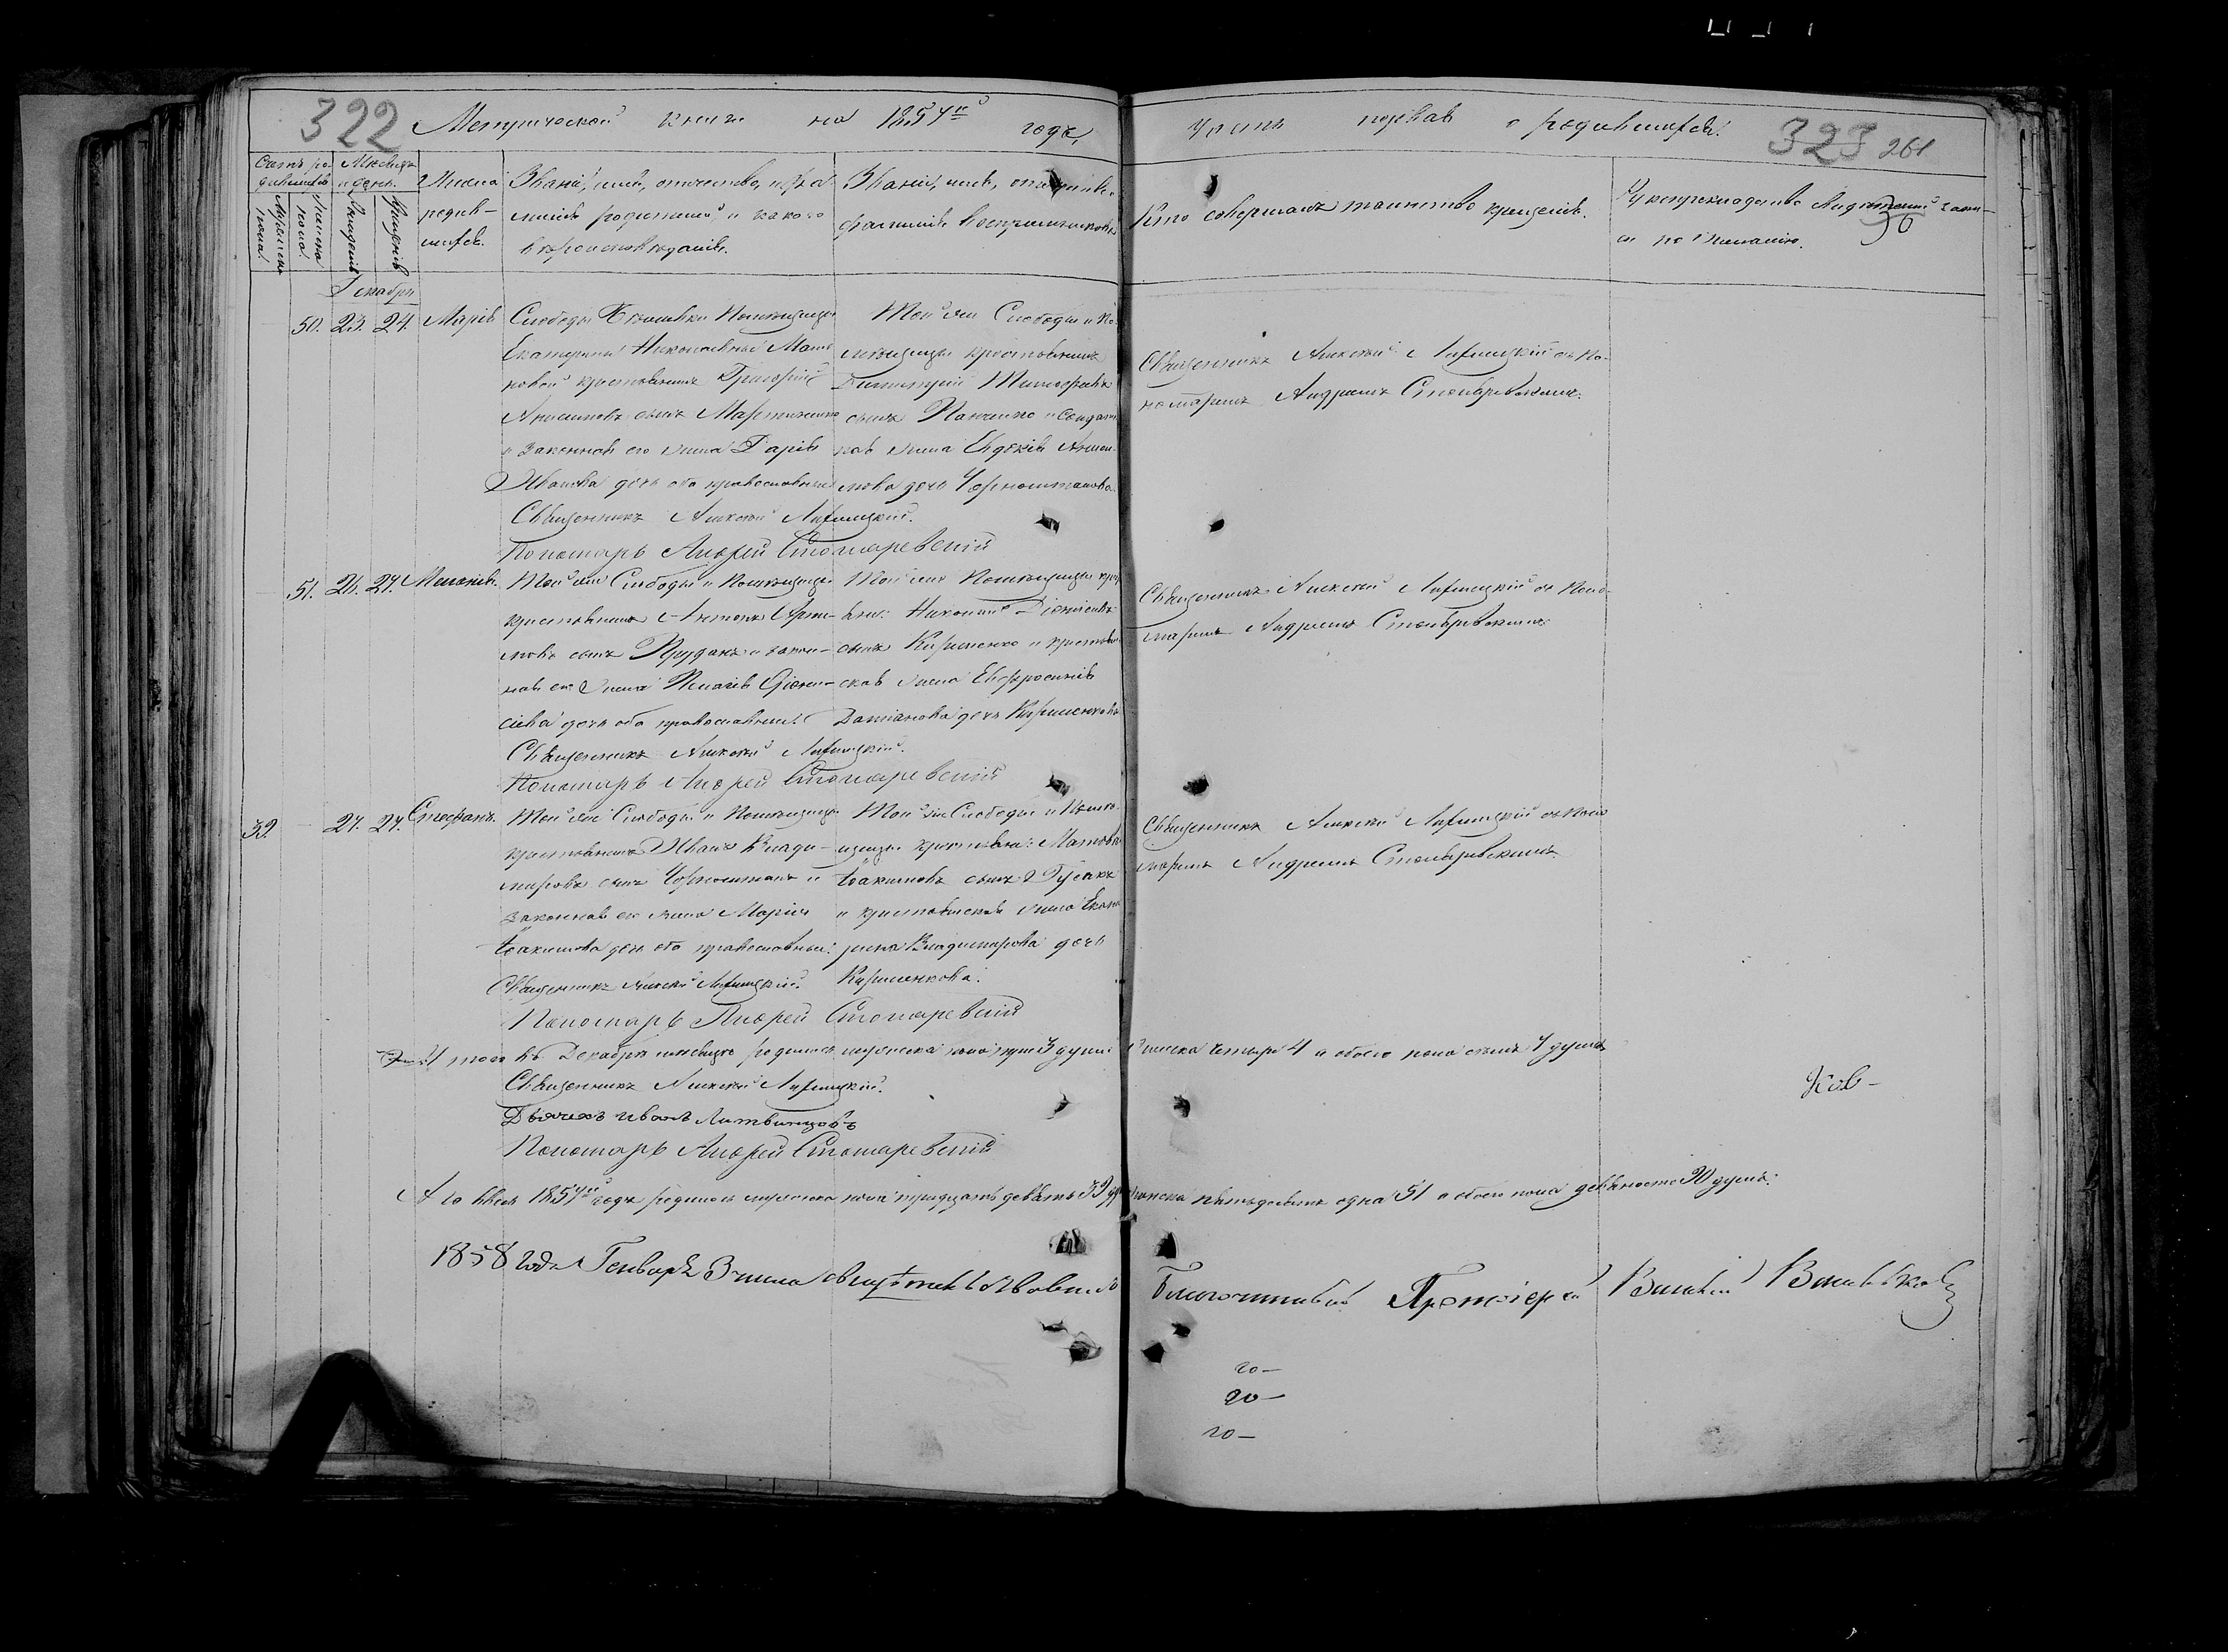 322 Метрической книги на 1857й года,
часть первая о родившихся. 323 261
Счетъ ро-
дившихся
Мужеска
пола.
Женска
пола.
Месяцъ
и день.
Рожденія
Крещенія
Имена
родив-
шихся.
Званіе, имя, отчество, и фа-
милія родителей, и какого
вероисповеданія.
Званіе, имя, отчество,
фамилія воспріемниковъ
Кто совершалъ таинство крещенія.
Рукоприкладство свидетелей запи-
си по желанію.
Декабрь
50. 23. 24. Марія
Слободы Помещицы
Екатерины Николаевны
крестьянинъ Григорій
Анисимовъ сынъ Мартыненко
и законная его жена Дарія
Иванова дочь оба православные
Священникъ Алексей
Пономарь Андрей Столяревскій
Той же Слободы и По-
мещицы крестьянинъ
Димитрій Тимофеевъ
сынъ Панченко и солдат-
кая жена Евдокія
дочь Черноштанова.
Священникъ Алексей съ По-
номаремъ Андреемъ Столяревскимъ.
51. 26. 27. Меланія.
Той же Слободы и Помещицы
крестьянинъ Антонъ Арте-
мовъ сынъ Прудакъ и закон-
ная его жена Пелагія Діони-
сіева дочь оба православные
Священникъ Алексей
Пономарь Андрей Столяревскій
Той же Помещицы крес
Николай Діонисіевъ
сынъ Кириленко и крестьян
ская жена Евфросинія
Даміанова дочь Кириленкова
Священникъ Алексей съ Поно-
маремъ Андреемъ Столяревскимъ
39. 27. 27. Стефанъ.
Той же Слободы и Помещицы
крестьянинъ Иванъ Влади-
мировъ сынъ Черноштанъ и
законная его жена Марія
Іоакимова дочь оба православные.
Священникъ Алексей
Пономарь Андрей Столяревскій
Той же Слободы и Поме-
щицы крестьян: Матвей
Іоакимовъ сынъ Гусакъ
и крестьянская жена Екате
рина Владимирова дочь
Кириленкова.
Священникъ Алексей съ Поно
маремъ Андреемъ Столяревскимъ.
того въ Декабре месяце родилось мужеска пола три 3 души женска четыре 4 и обоего пола семь 7 душъ
Священникъ Алексей
Дьячекъ Иванъ Литвинцовъ
Пономарь Андрей Столяревскій
А во всемъ 1857м годе родилось мужеска пола тридцать девять 39 женска пятьдесятъ одна 51 и обоего пола девяносто 90 душъ.
1858 года Генваря 3 числа
Благочинный Протоіерей Василій
20 —
20 —
20 —